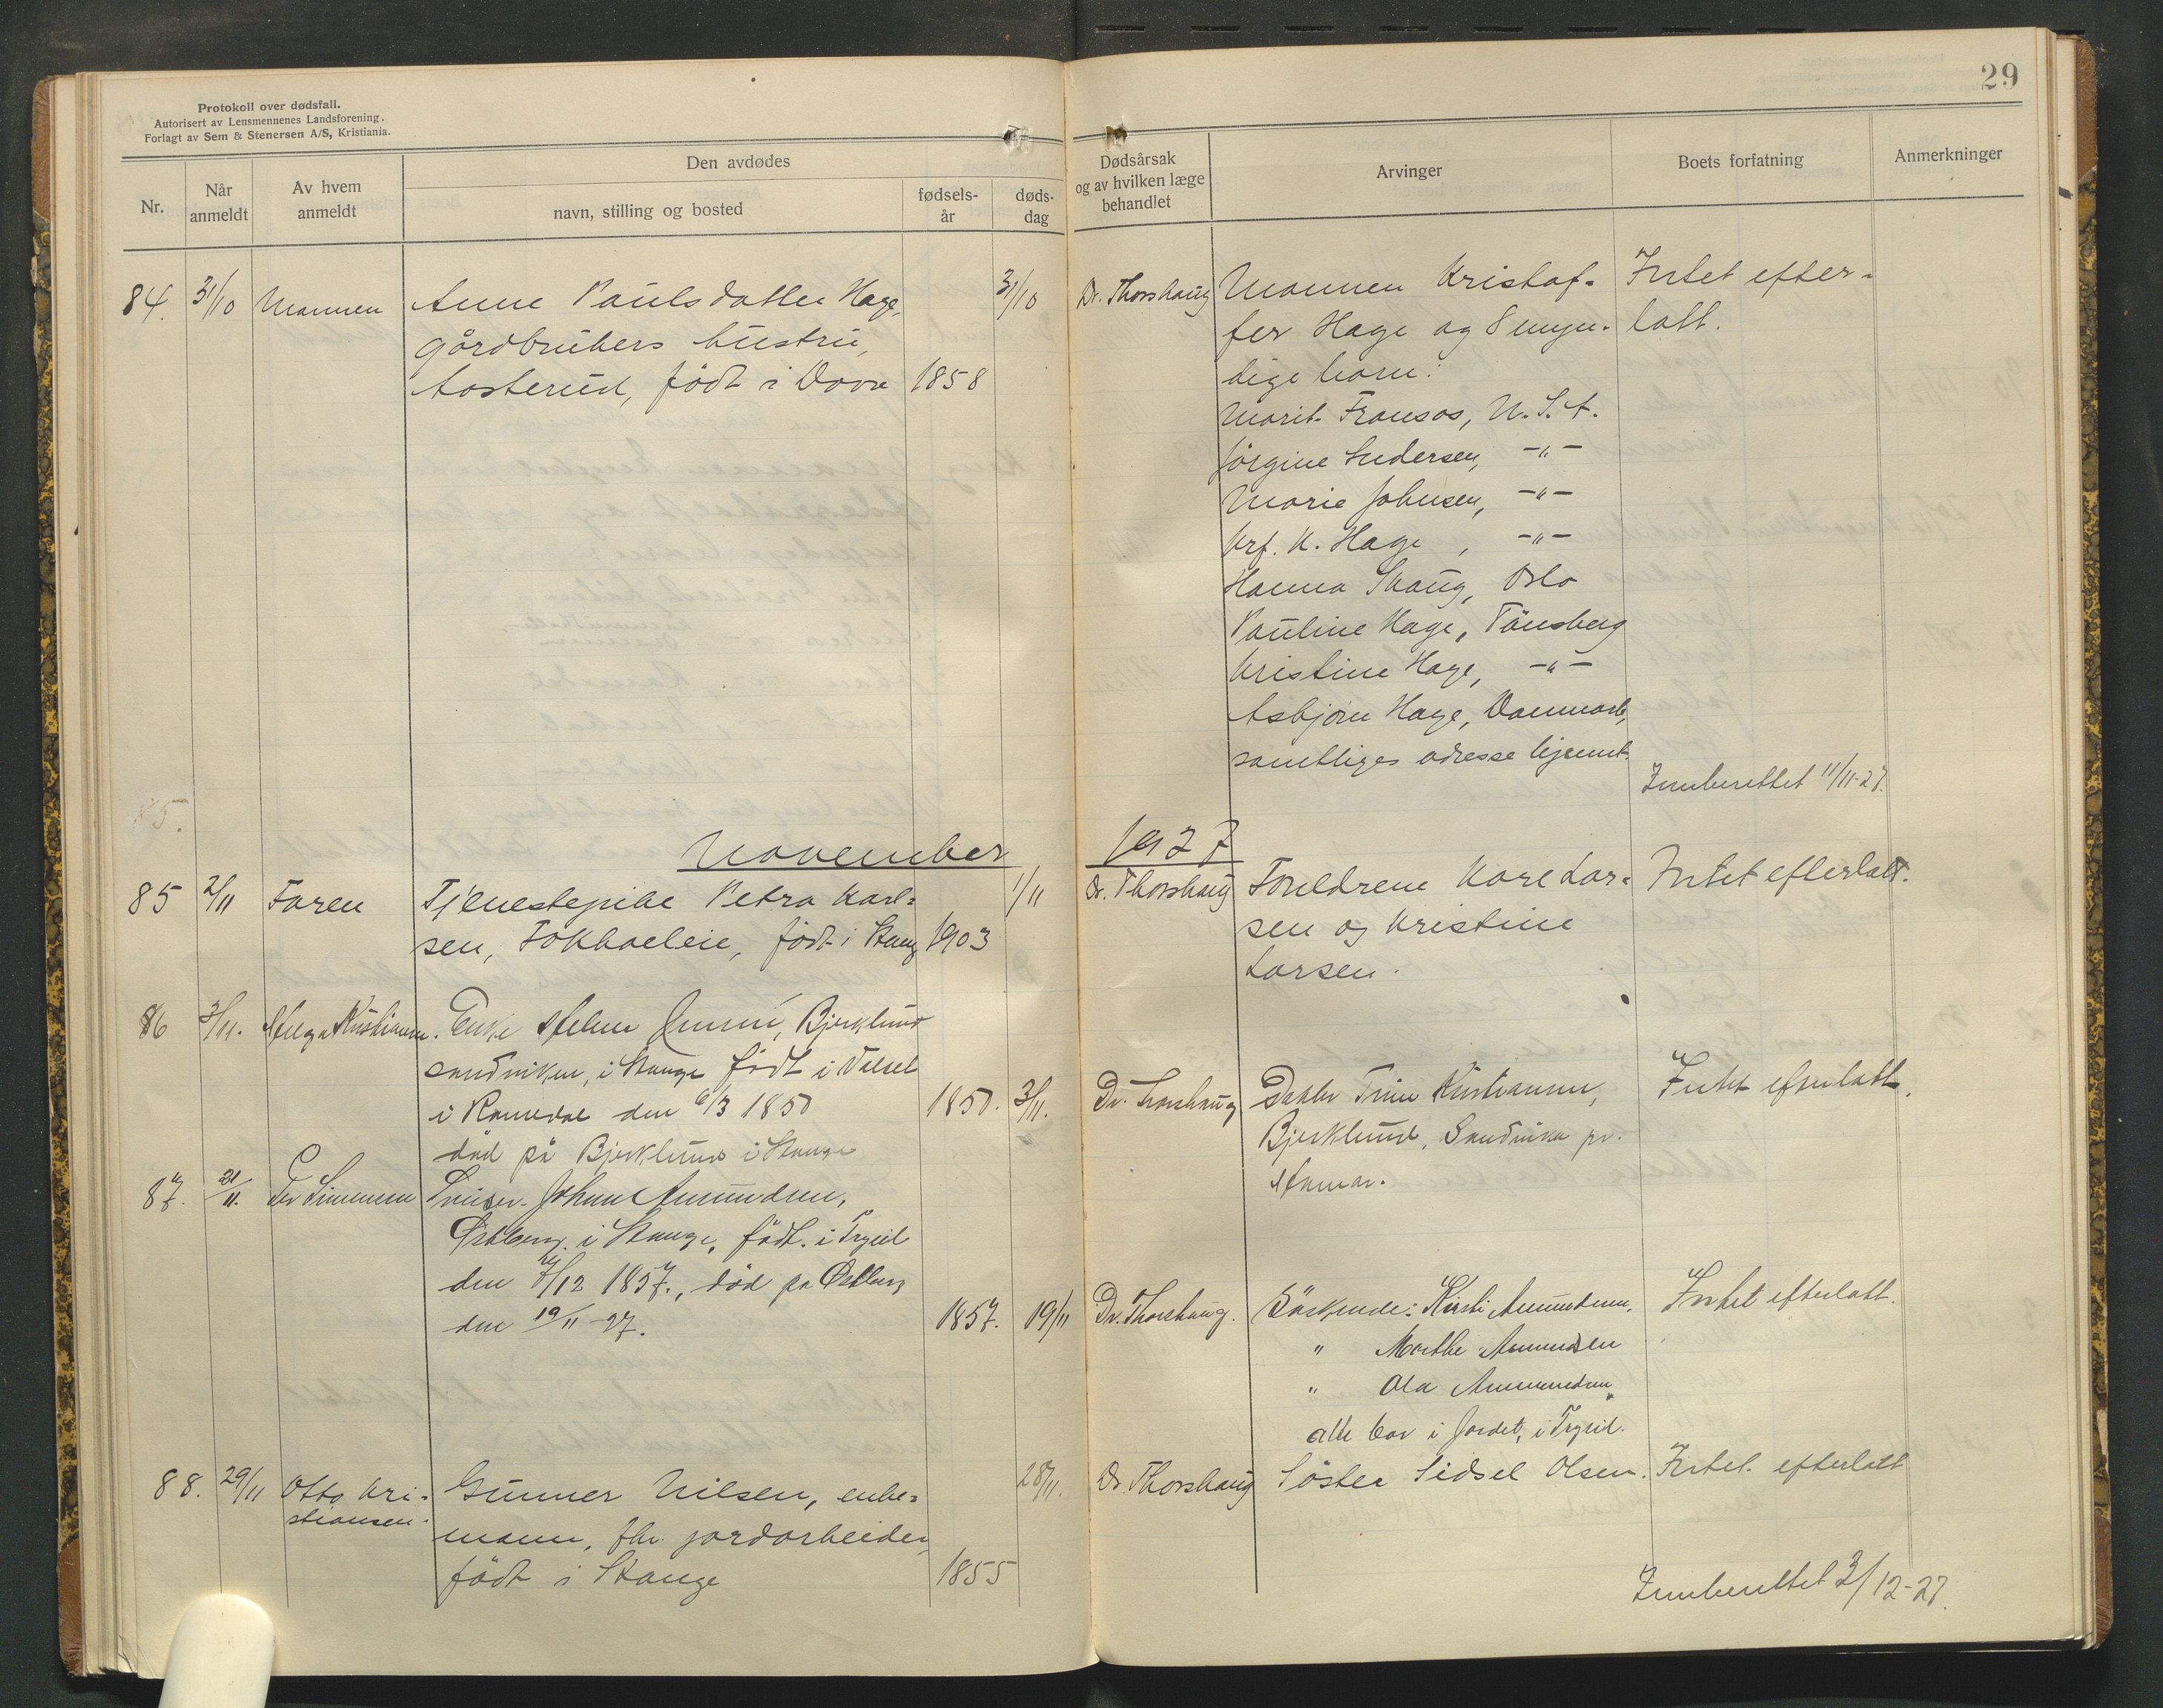 29
Protokoll over dødsfall.
Autorisert av Lensmennenes Landsforening.
Forlagt av Sem & Stenersen A/S, Kristiania.
Nr.
Når anmeldt
Av hvem anmeldt
Den avdødes
navn, stilling og bosted
fødsels-år
døds-dag
Dødsårsak og av hvilken læge behandlet
Arvinger
Boets forfatning
Anmerkninger
84. 31/10 Mannen Anne Paulsdatter Hage, 31/10 Dr. Thorshaug Mannen Kristof- Intet efter-
gårdbrukers hustru, fer Hage og 8 myn- latt.
Aasterud, født i Dovre 1858 dige barn:
Marit Fransos, U.S.A.
Jörgine Andersen, -"-
Marie Johnsen, -"-
Krf. K. Hage, -"-
Hanna Skaug, Oslo
Pauline Hage, Tönsberg
Kristine Hage, -"-
Asbjørn Hage, Danmark,
samtliges adresse ukjennt.
Innberettet 11/11-27.
85.
November 1927
85 2/11 Faren Tjenestepike Petra Karl- 1/11 Dr. Thorshaug Foreldrene Kare Lar- Intet efterlatt.
sen, født i Stange 1903 sen og Kristine
Larsen.
86 3/11. Helga Kristiansen. Enke Bjerklund
Sandviken, i Stange født i
i Romedal den 6/3 1850 1850. 3/11. Dr. Thorshaug Datter Trine Kristiansen, Intet efterlatt.
død på Bjerklund i Stange Bjerklund, Sandvika pr.
Hamar.
87. 21/11. Per Simensen Snekker Johan Amundsen,
Østberg i Stange, født i Trysil
den 4/12 1857., död på Østberg
den 19/11-27. 1857. 19/11 Dr. Thorshaug. Söskende: Kirsti Amundsen, Intet efterlatt.
" Marthe Amundsen
" Ola Amundsen,
alle bor i Jordet, i Trysil.
88. 29/11 Otto Kri- Gunner Nilsen, enke- 28/11. Dr. Thorshaug Söster Sidsel Olsen. Intet efterlatt
stiansen. mann, fhv. jordarbeider,
født i Stange 1855
Innberettet 3/12-27.